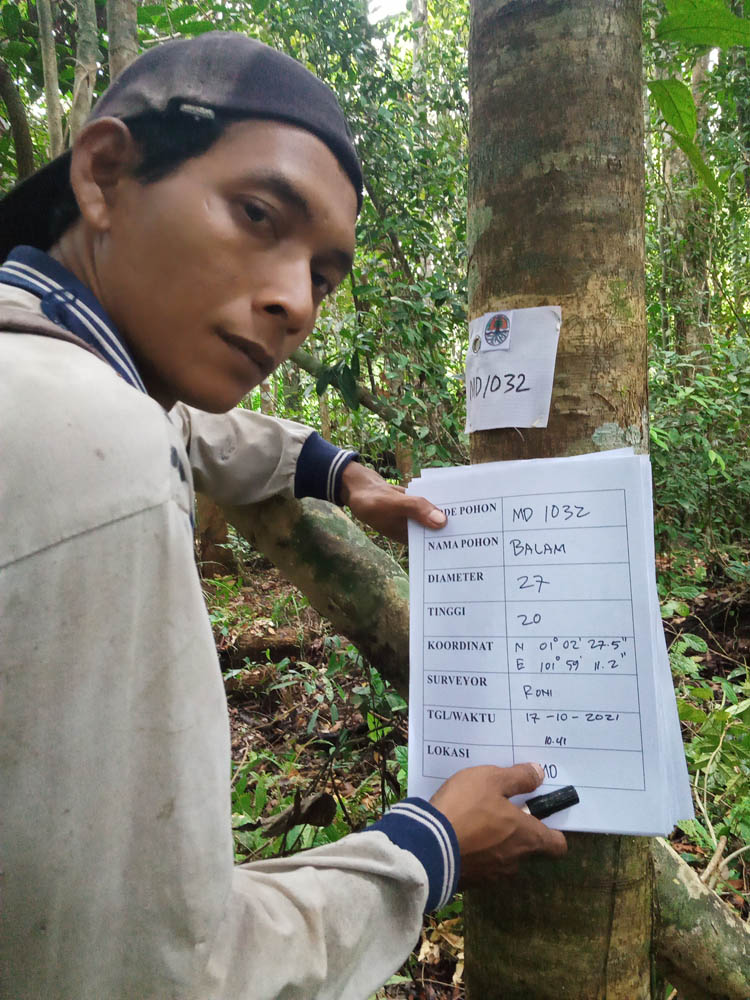 MD1032
DE POHON MD 1032
NAMA POHON BALAM
DIAMETER 27
TINGGI 20
KOORDINAT N 01° 02' 27.5"
E 101° 59' 11.2"
SURVEYOR RONI
TGL/WAKTU 17-10-2021
10.41
LOKASI MD